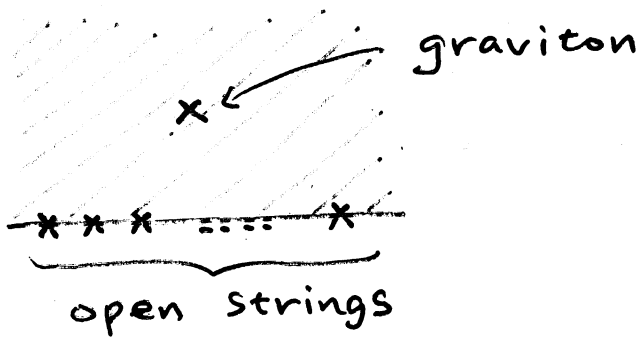 graviton
open strings